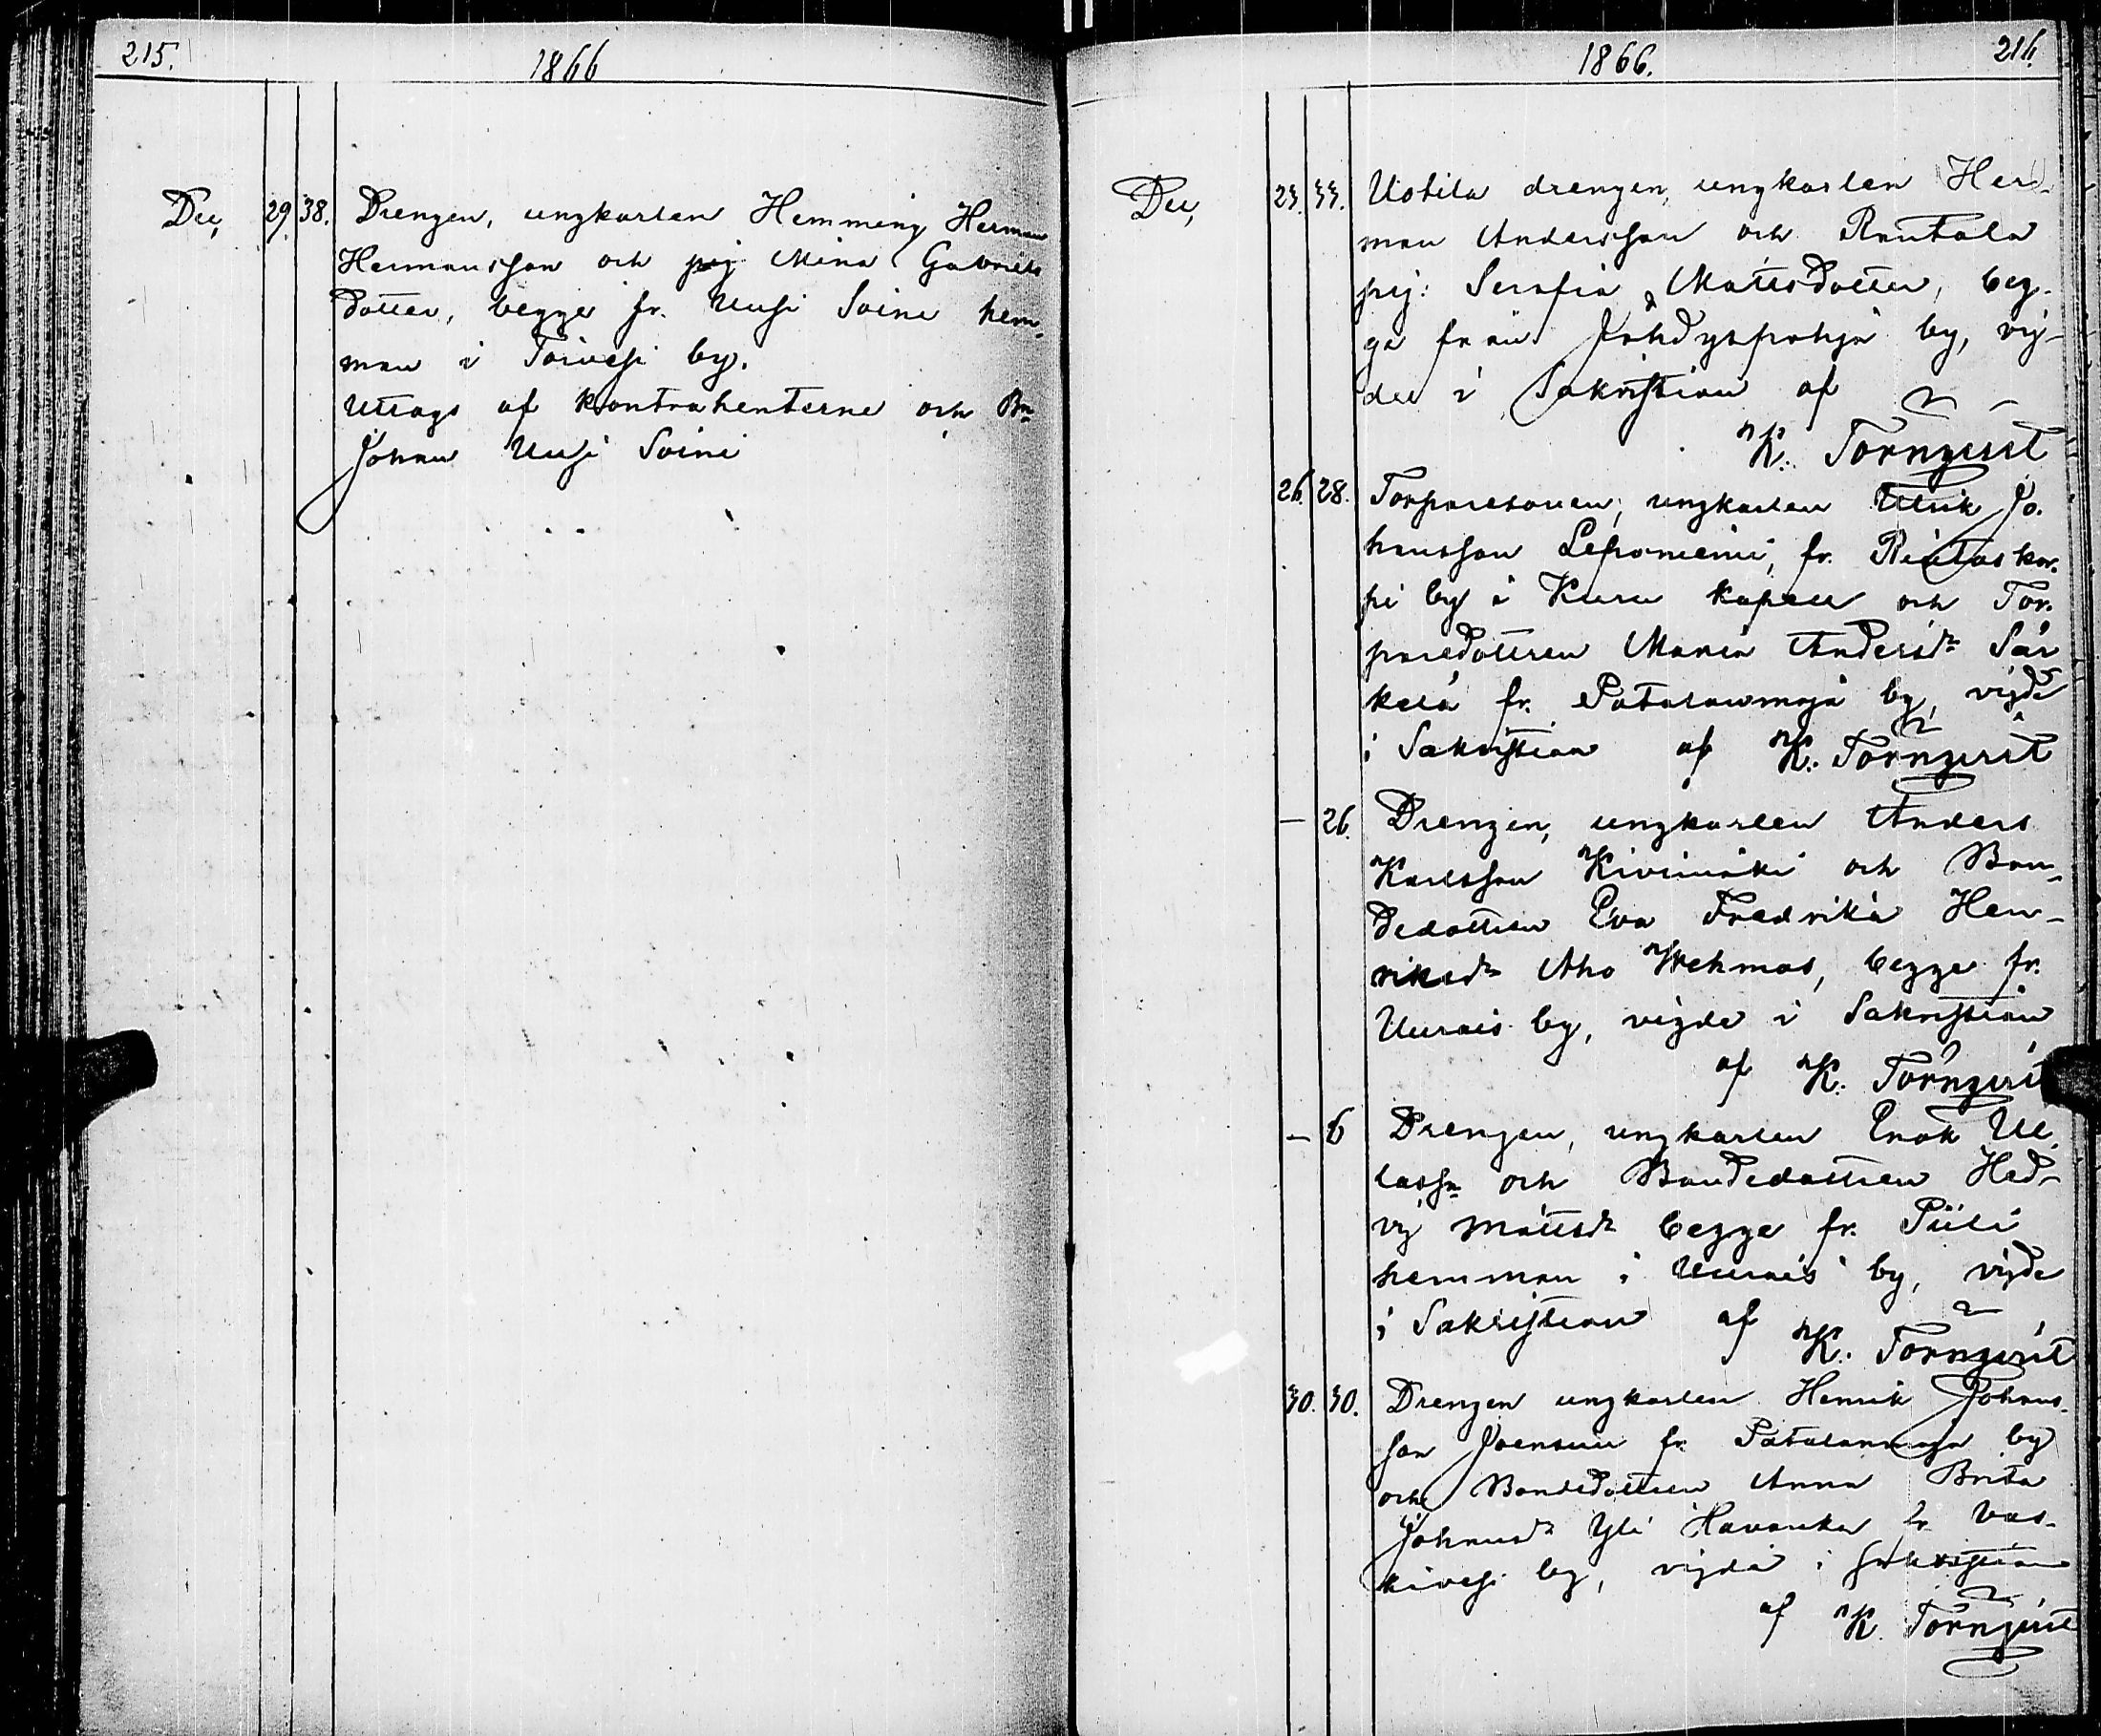 215.
1866
Dec, 29. 38. Drengen, ungkarlen Hemming Herman
Hermansson och pig Mina Gabriels
dotter, begge fr. Uusi Soini hem-
man i Toivesi by.
Uttogs af kontrahenterne och Bn
Johan Uusi Soini
1866.
216.
Dec, 23. 33. Uotila drengen, ungkarlen Her-
man Andersson och Rautala
pig: Serafia Mattsdotter, beg-
ge från Jähdyspohja by, vig-
der i Sakristian af
K. Törnqvist
26. 28. Torparesonen, ungkarlen Ulrik Jo-
hansson Leponiemi, fr. Riitaskor-
pi by i Kuru kapell och Tor-
paredottren Maria Andersdr Sär
kelä fr. Patalanmaja by, vigde
i Sakristian af K. Törnqvist
— 26. Drengen, ungkarlen Anders
Karlsson Kivimäki och Bon-
dedottren Eva Fredrika Hen-
riksdr Aho Wehmas, begge fr.
Uurais by, vigde i Sakristian
af K. Törnqvist
— 6 Drengen, ungkarlen Enok Ul-
lassn och Bondedottren Hed-
vig Mattsdr begge fr. Piili
hemman i Uurais by, vigde
i Sakristian af
K. Törnqvist
30. 30. Drengen ungkarlen Henrik Johans-
son Joensuu fr. Patalanmaja by
och Bondedottren Anna Brita
Johansdr Yli Havanka fr Vas-
kivesi by, vigda i Sakristian
af K. Törnqvist